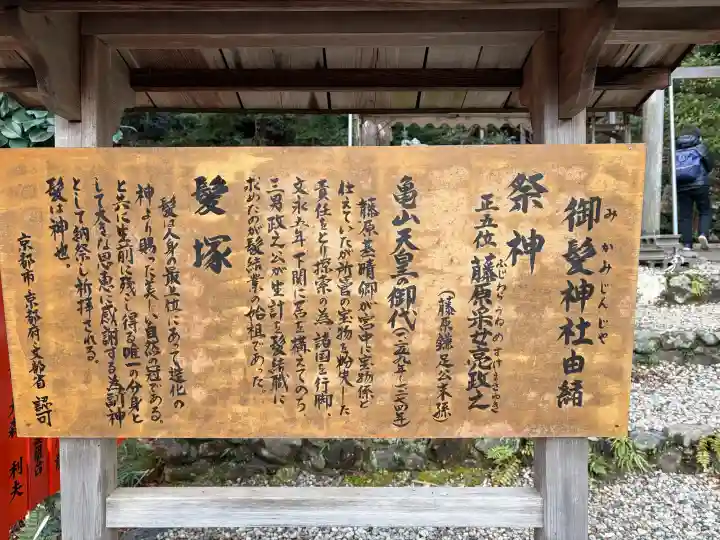 御髪神社由緒
みかみじんじゃ
祭神
正五位 藤原采女亮政之
ふじわらうねめのすけまさゆき
(藤原鎌足公末孫)
亀山天皇の御代
藤原基晴卿が宮中に宝物係と
仕えていたが所管の宝物を紛失した
責任をとり探索の為諸国を行脚、
文永五年下関に居を構えてのち、
三男政之公が生計を髪結職に
求めたのが髪結業の始祖であった。
髪塚
髪は人身の最上位にあって造化の
神より賜った美しい自然の冠である。
と共に生前に残し得る唯一の分身と
して大きな恩恵に感謝する為討神
として納祭し祈拝される。
髪は神也。
京都市・京都府・文部省 認可
利夫